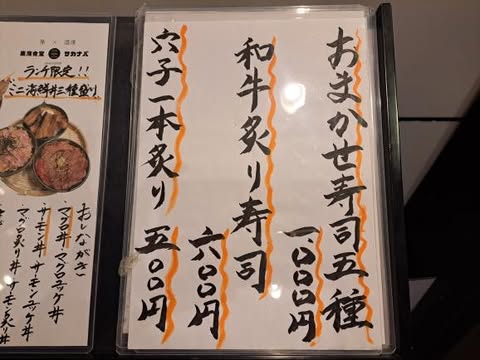 おまかせ寿司五種
一、〇〇〇円
和牛炙り寿司
六〇〇円
穴子一本炙り
五〇〇円
サカナバ
ランチ限定!!
ミニ海鮮丼三種盛り
おしながき
・マグロ丼・マグロユッケ丼
・サーモン丼・サーモンユッケ丼
・マグロ炙り丼・サーモン炙り丼